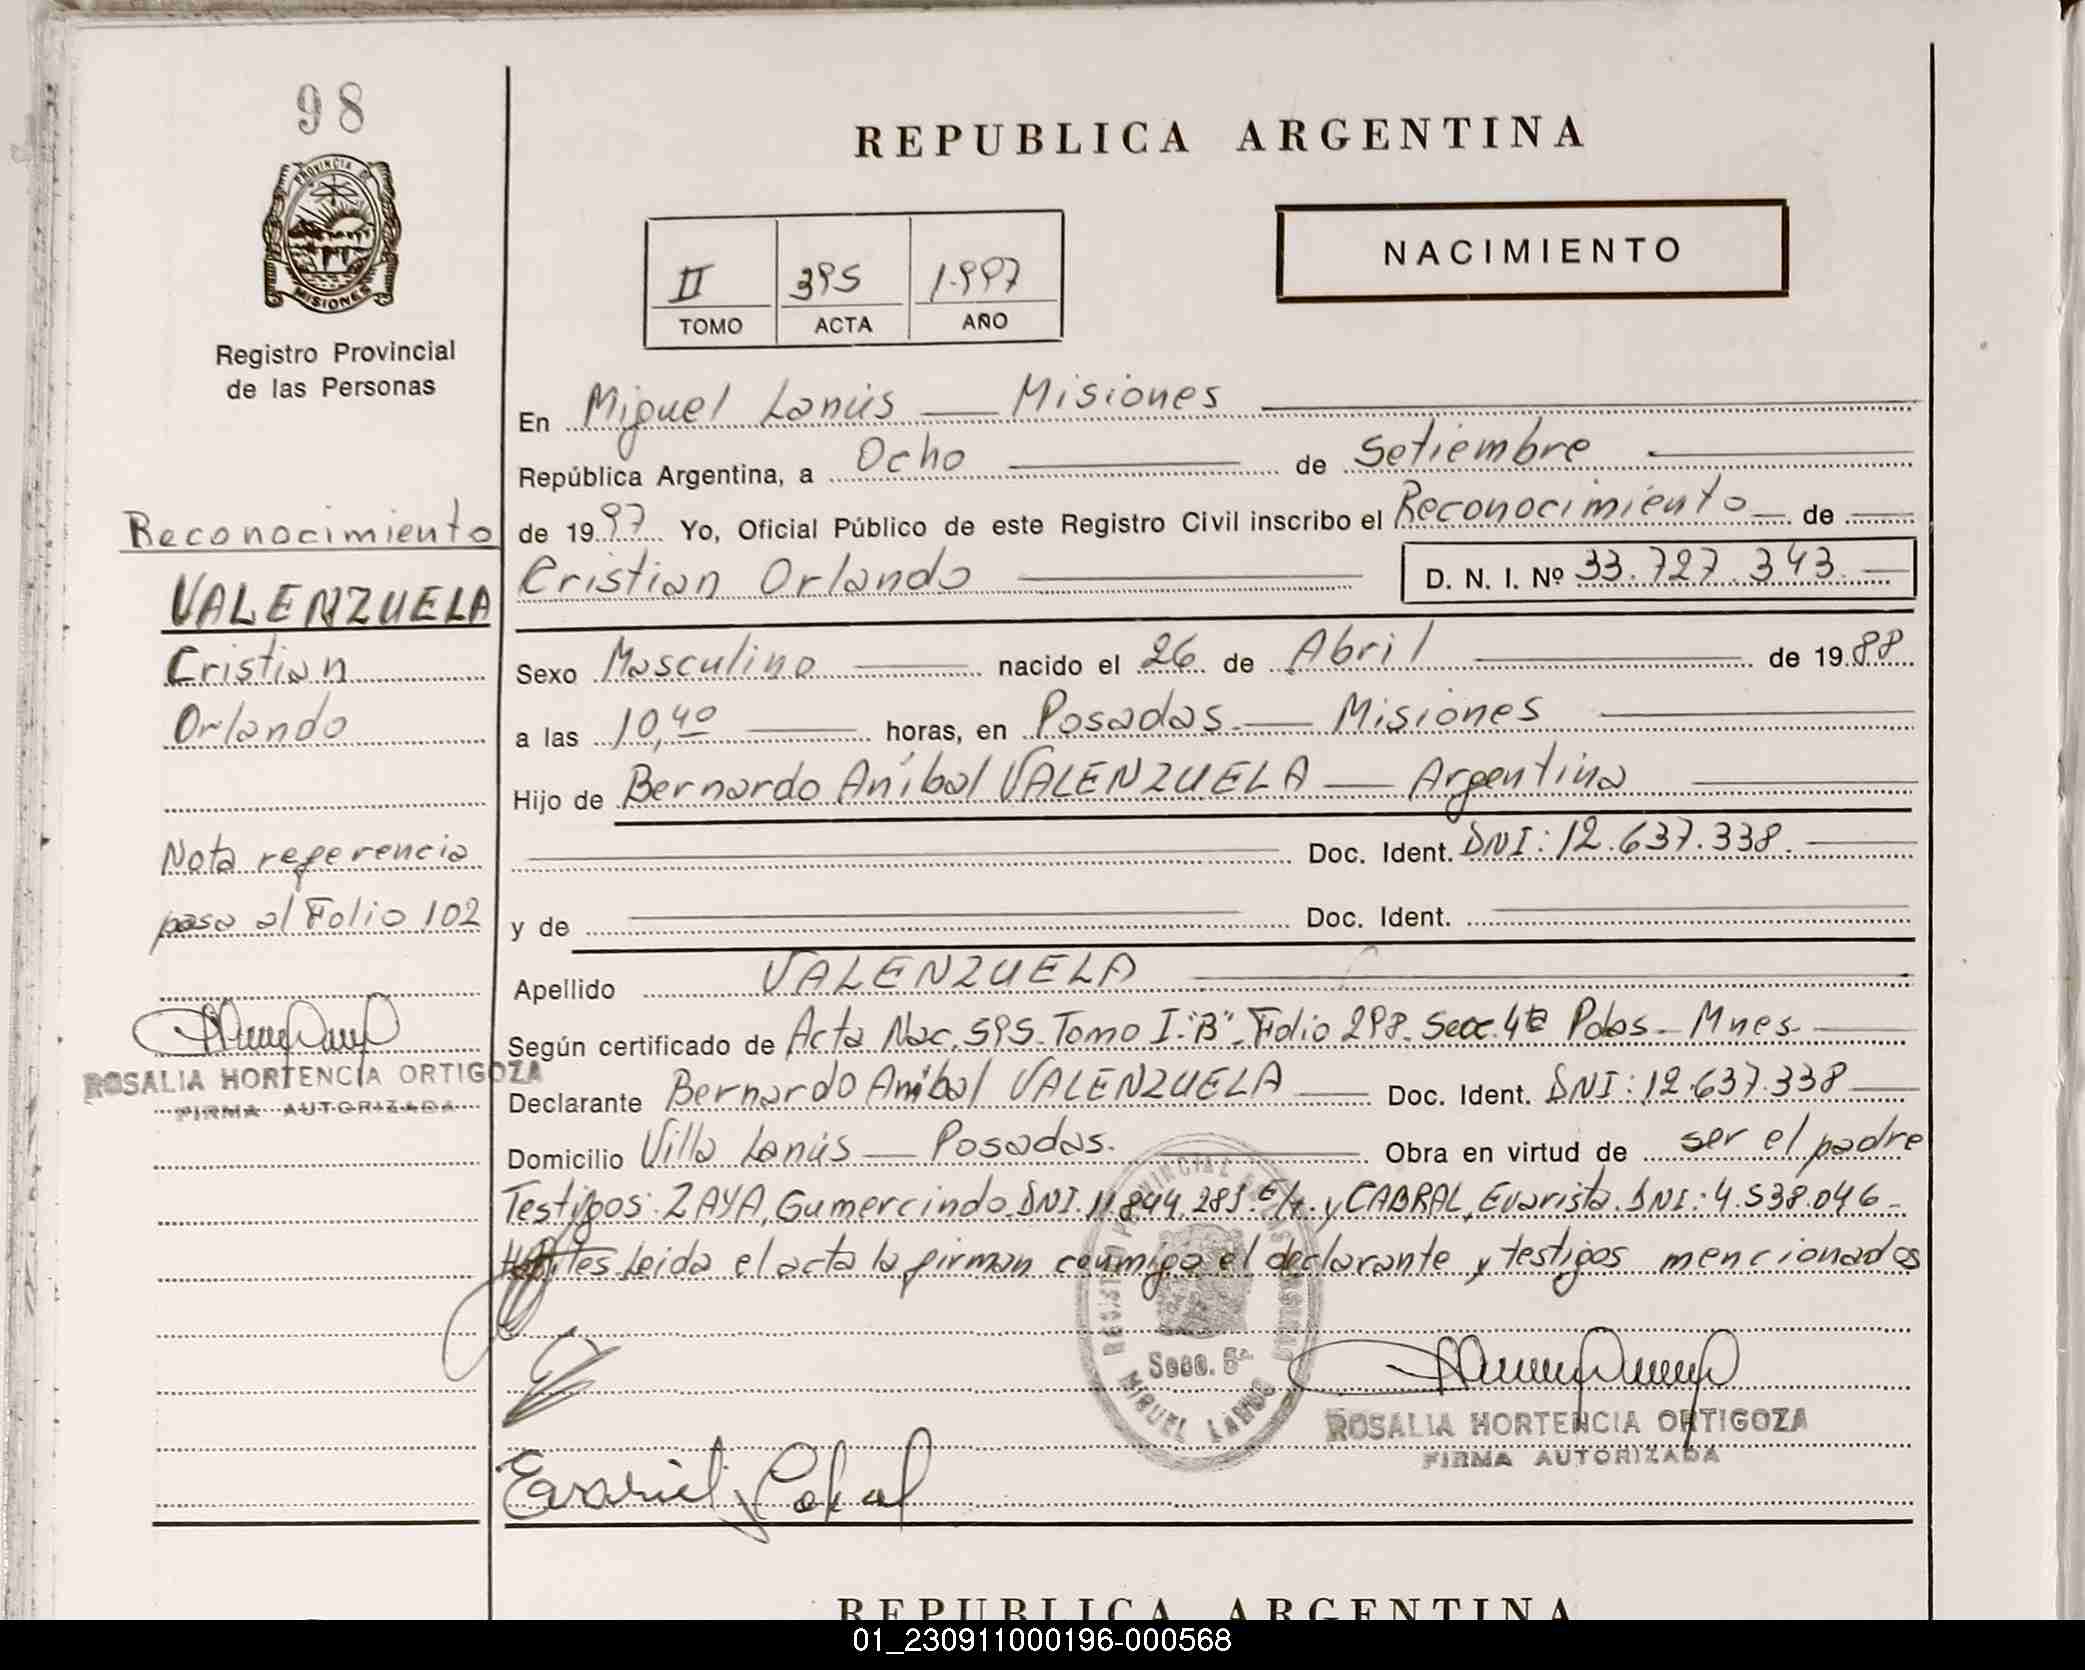 98
PROVINCIA DE
MISIONES
Registro Provincial
de las Personas
Reconocimiento
VALENZUELA
Cristian
Orlando
Nota referencia
pasa al Folio 102
ROSALIA HORTENCIA ORTIGOZA
FIRMA AUTORIZADA
REPUBLICA ARGENTINA
NACIMIENTO
II 395 1.997
TOMO ACTA AÑO
En Miguel Lanús Misiones
República Argentina, a Ocho de Setiembre
de 1997 Yo, Oficial Público de este Registro Civil inscribo el Reconocimiento de
Cristian Orlando D. N. I. Nº 33.727.343.
Sexo Masculino nacido el 26 de Abril de 1988
a las 10,40 horas, en Posadas Misiones
Hijo de Bernardo Aníbal VALENZUELA Argentina
Doc. Ident. DNI: 12.637.338.
y de Doc. Ident.
Apellido VALENZUELA
Según certificado de Acta Nac. 595. Tomo I. "B". Folio 298. Secc. 4ta Pdas. Mnes.
Declarante Bernardo Aníbal VALENZUELA Doc. Ident. DNI: 12.637.338
Domicilio Villa Lanús Posadas. Obra en virtud de ser el padre
Testigos: ZAYA, Gumercindo. DNI. 11.844.285. y CABRAL, Evarista. DNI: 4.538.046
Leida el acta la firman conmigo el declarante y testigos mencionados
Secc. 6ª
MIGUEL LANUS
ROSALIA HORTENCIA ORTIGOZA
FIRMA AUTORIZADA
REPUBLICA ARGENTINA
01_230911000196-000568